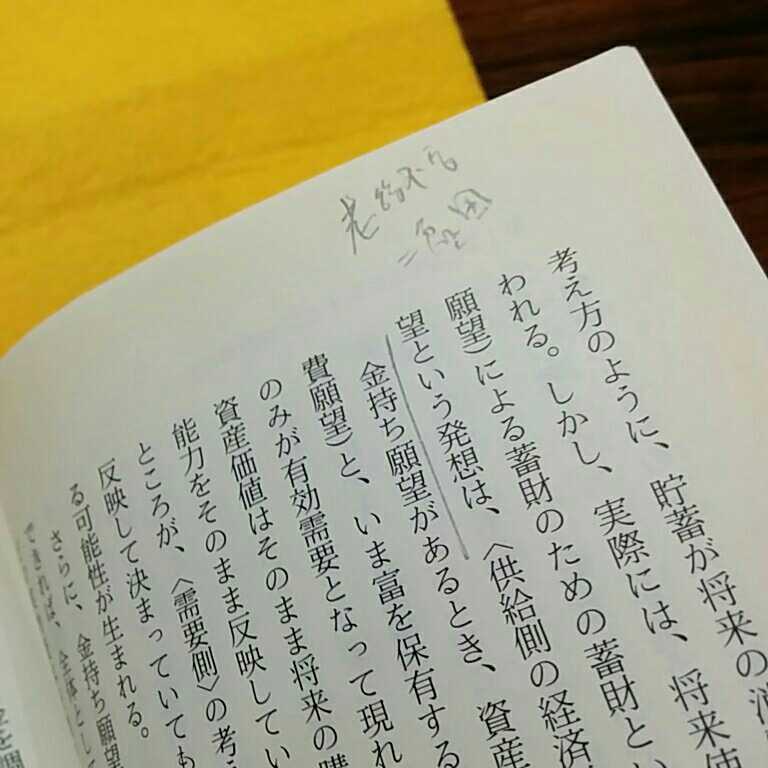 考え方のように、貯蓄が将来の消
われる。しかし、実際には、将来使
願望）による蓄財のための蓄財とい
望という発想は、〈供給側の経済
金持ち願望があるとき、資産
費願望）と、いま富を保有する
のみが有効需要となって現れ
資産価値はそのまま将来の購
能力をそのまま反映してい
ところが、〈需要側〉の考
反映して決まっていても
る可能性が生まれる。
さらに、金持ち願望
できれば、全体として